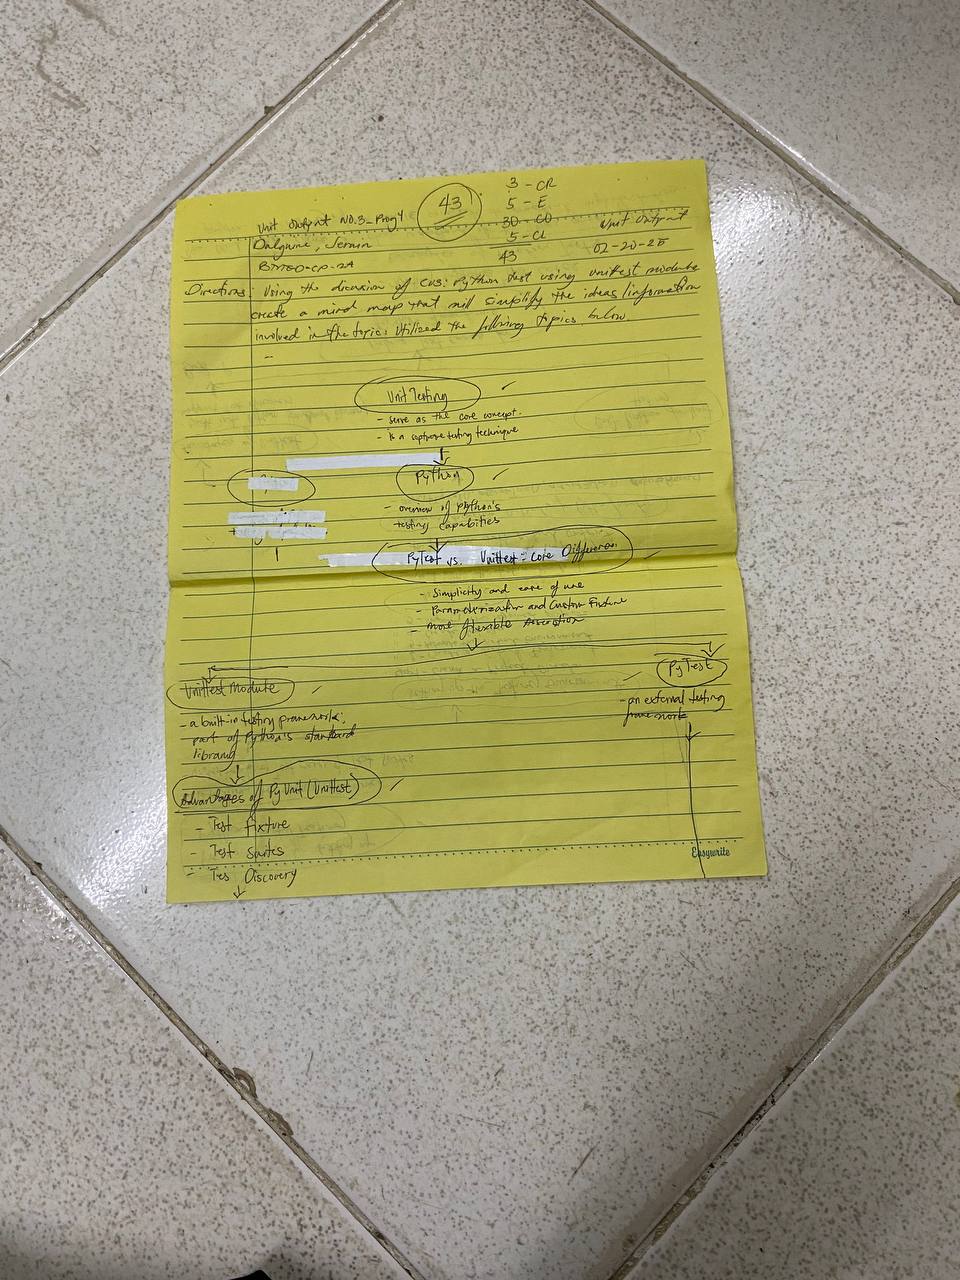 43
3 - CR
5 - E
30 - CO
5 - CL
43
Unit Output NO.3_Prog4
Unit Output
02-20-25
Dalguine, Jerwin
BTVTED-CP-2A
Directions: Using the dicussion of CUS: Python test using unittest module
create a mind map that will simplify the ideas/information
involved in the topic. Utilized the following topics below
Unit Testing
- serve as the core concept.
- is a software testing technique
Python
- overview of Python's
testing capabities
PyTest vs. Unittest: Core Differences
- Simplicity and ease of use
- Parameterization and Custom Fixture
- more flexible Assertion
Unittest Module
- a built-in testing framework;
part of Python's standard
library
PyTest
- an external testing
framework
Advantages of PyUnit (Unittest)
- Test Fixture
- Test Suites
- Tes Discovery
Easywrite